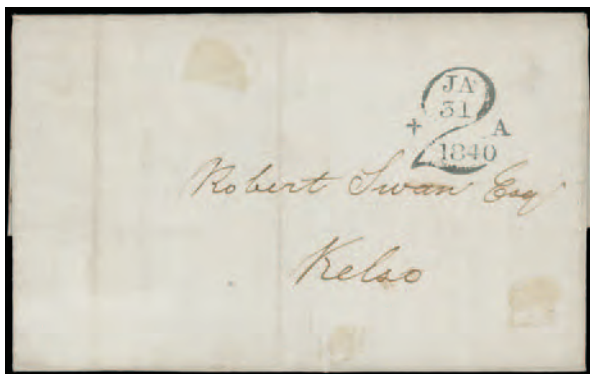 JA
31
+ 2 A
1840
Robert Swan Esq
Kelso